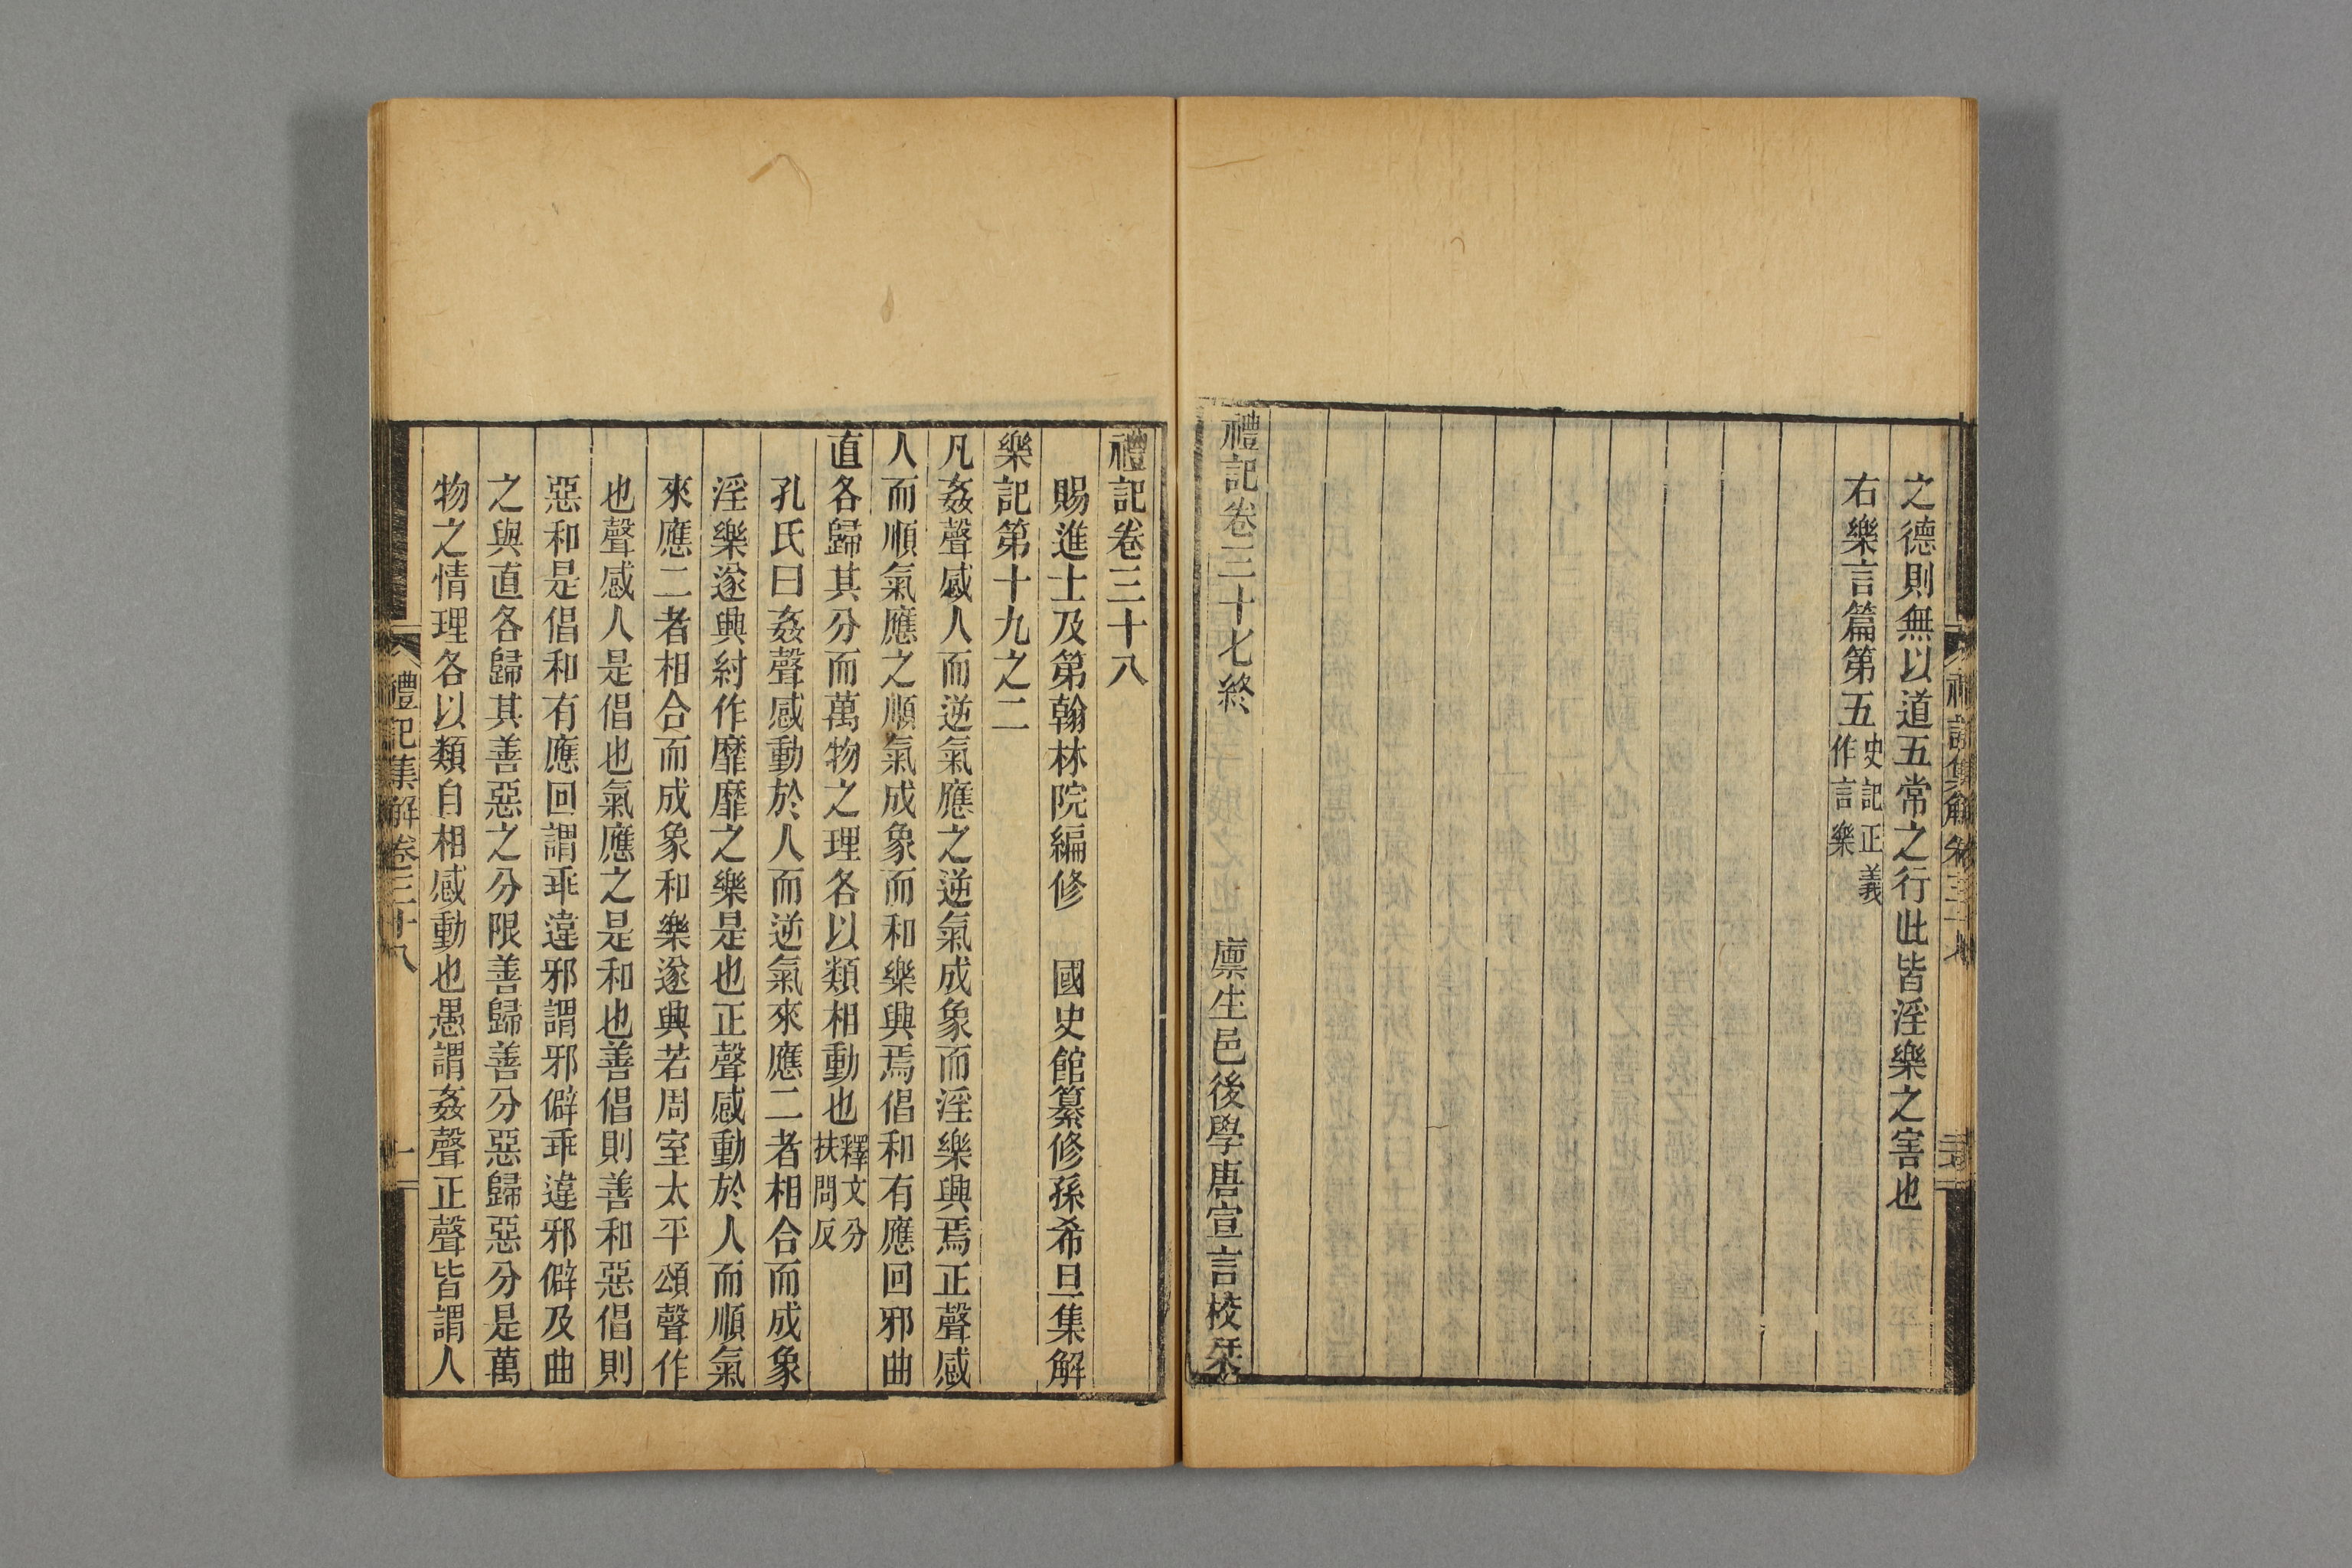 之德則無以道五常之行此皆淫樂之害也
右樂言篇第五史記正義作言樂
禮記卷三十七終　廪生邑後學唐宣言校栞
禮記卷三十八
賜進士及第翰林院編修　國史館纂修孫希旦集解
樂記第十九之二
凡姦聲感人而逆氣應之逆氣成象而淫樂興焉正聲感
人而順氣應之順氣成象而和樂興焉倡和有應回邪曲
直各歸其分而萬物之理各以類相動也釋文分扶問反
孔氏曰姦聲感動於人而逆氣來應二者相合而成象
淫樂遂興紂作靡靡之樂是也正聲感動於人而順氣
來應二者相合而成象和樂遂興若周室太平頌聲作
也聲感人是倡也氣應之是和也善倡則善和惡倡則
惡和是倡和有應回謂乖違邪謂邪僻乖違邪僻及曲
之與直各歸其善惡之分限善歸善分惡歸惡分是萬
物之情理各以類自相感動也愚謂姦聲正聲皆謂人
禮記集解卷三十八　一